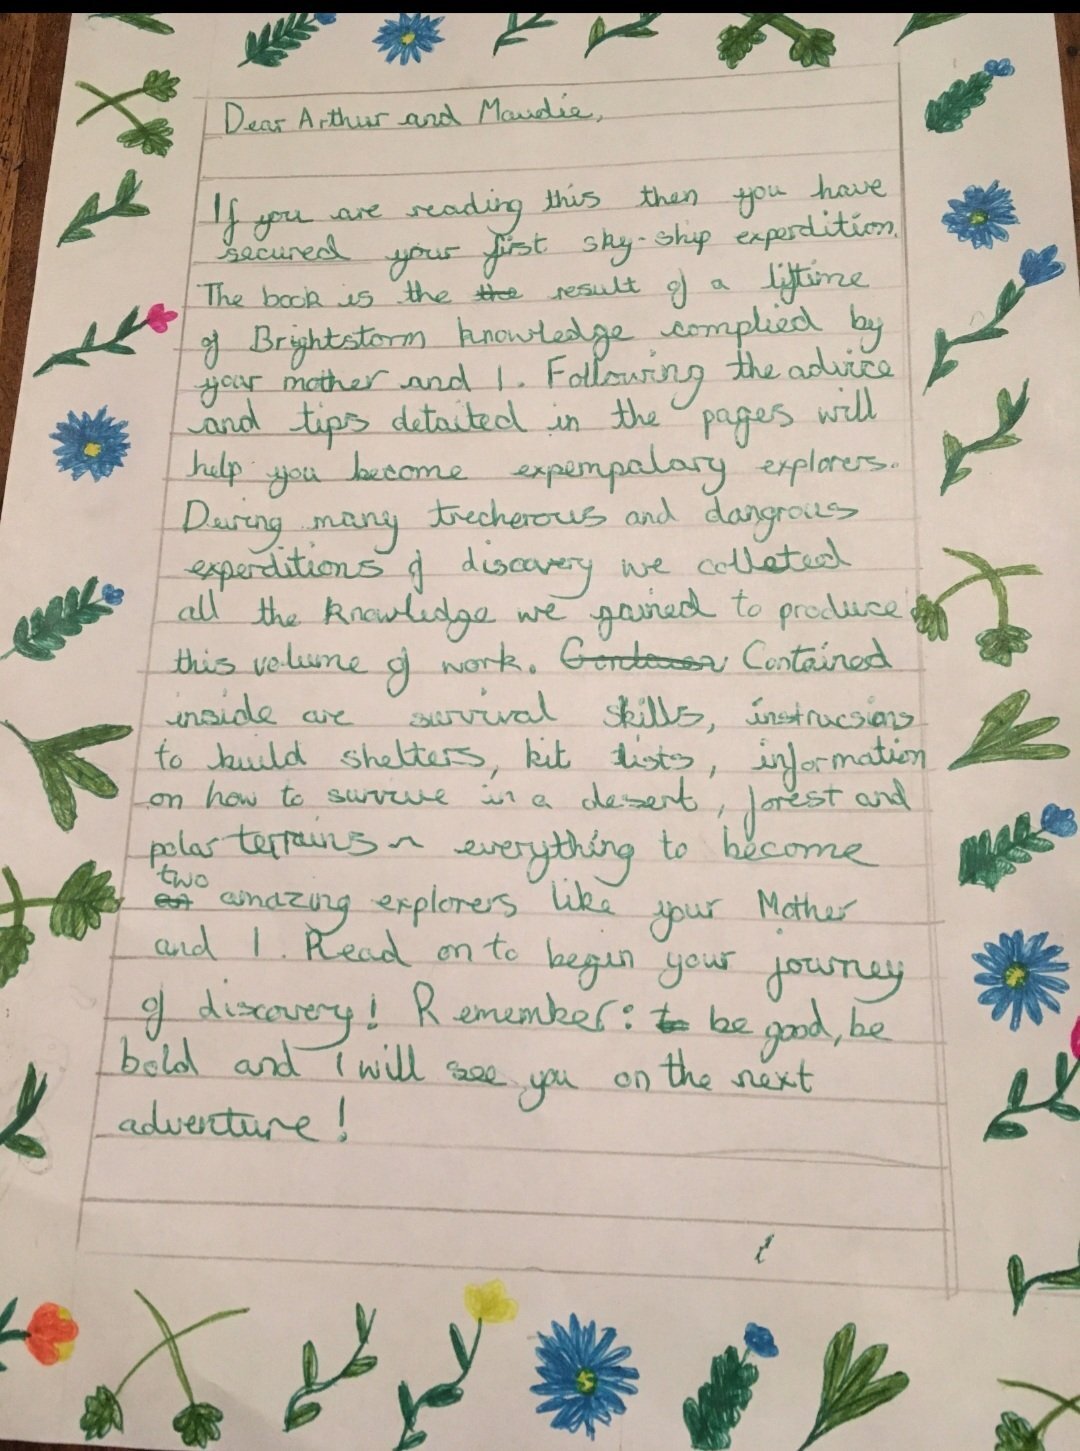 Dear Arthur and Maudie,
If you are reading this then you have
secured your first sky-ship experdition.
The book is the the result of a liftime
of Brightstorm knowledge complied by
your mother and I. Following the advice
and tips detailed in the pages will
help you become expempalary explorers.
During many trecherous and dangrous
experditions of discovery we colleted
all the knowledge we gained to produce
this volume of work. Contained
inside are survival skills, instrucsions
to build shelters, kit lists, information
on how to survive in a desert, forest and
polar terrains ~ everything to become
two
amazing explorers like your Mother
and I. Read on to begin your journey
of discovery! Remember: to be good, be
bold and I will see you on the next
adventure!